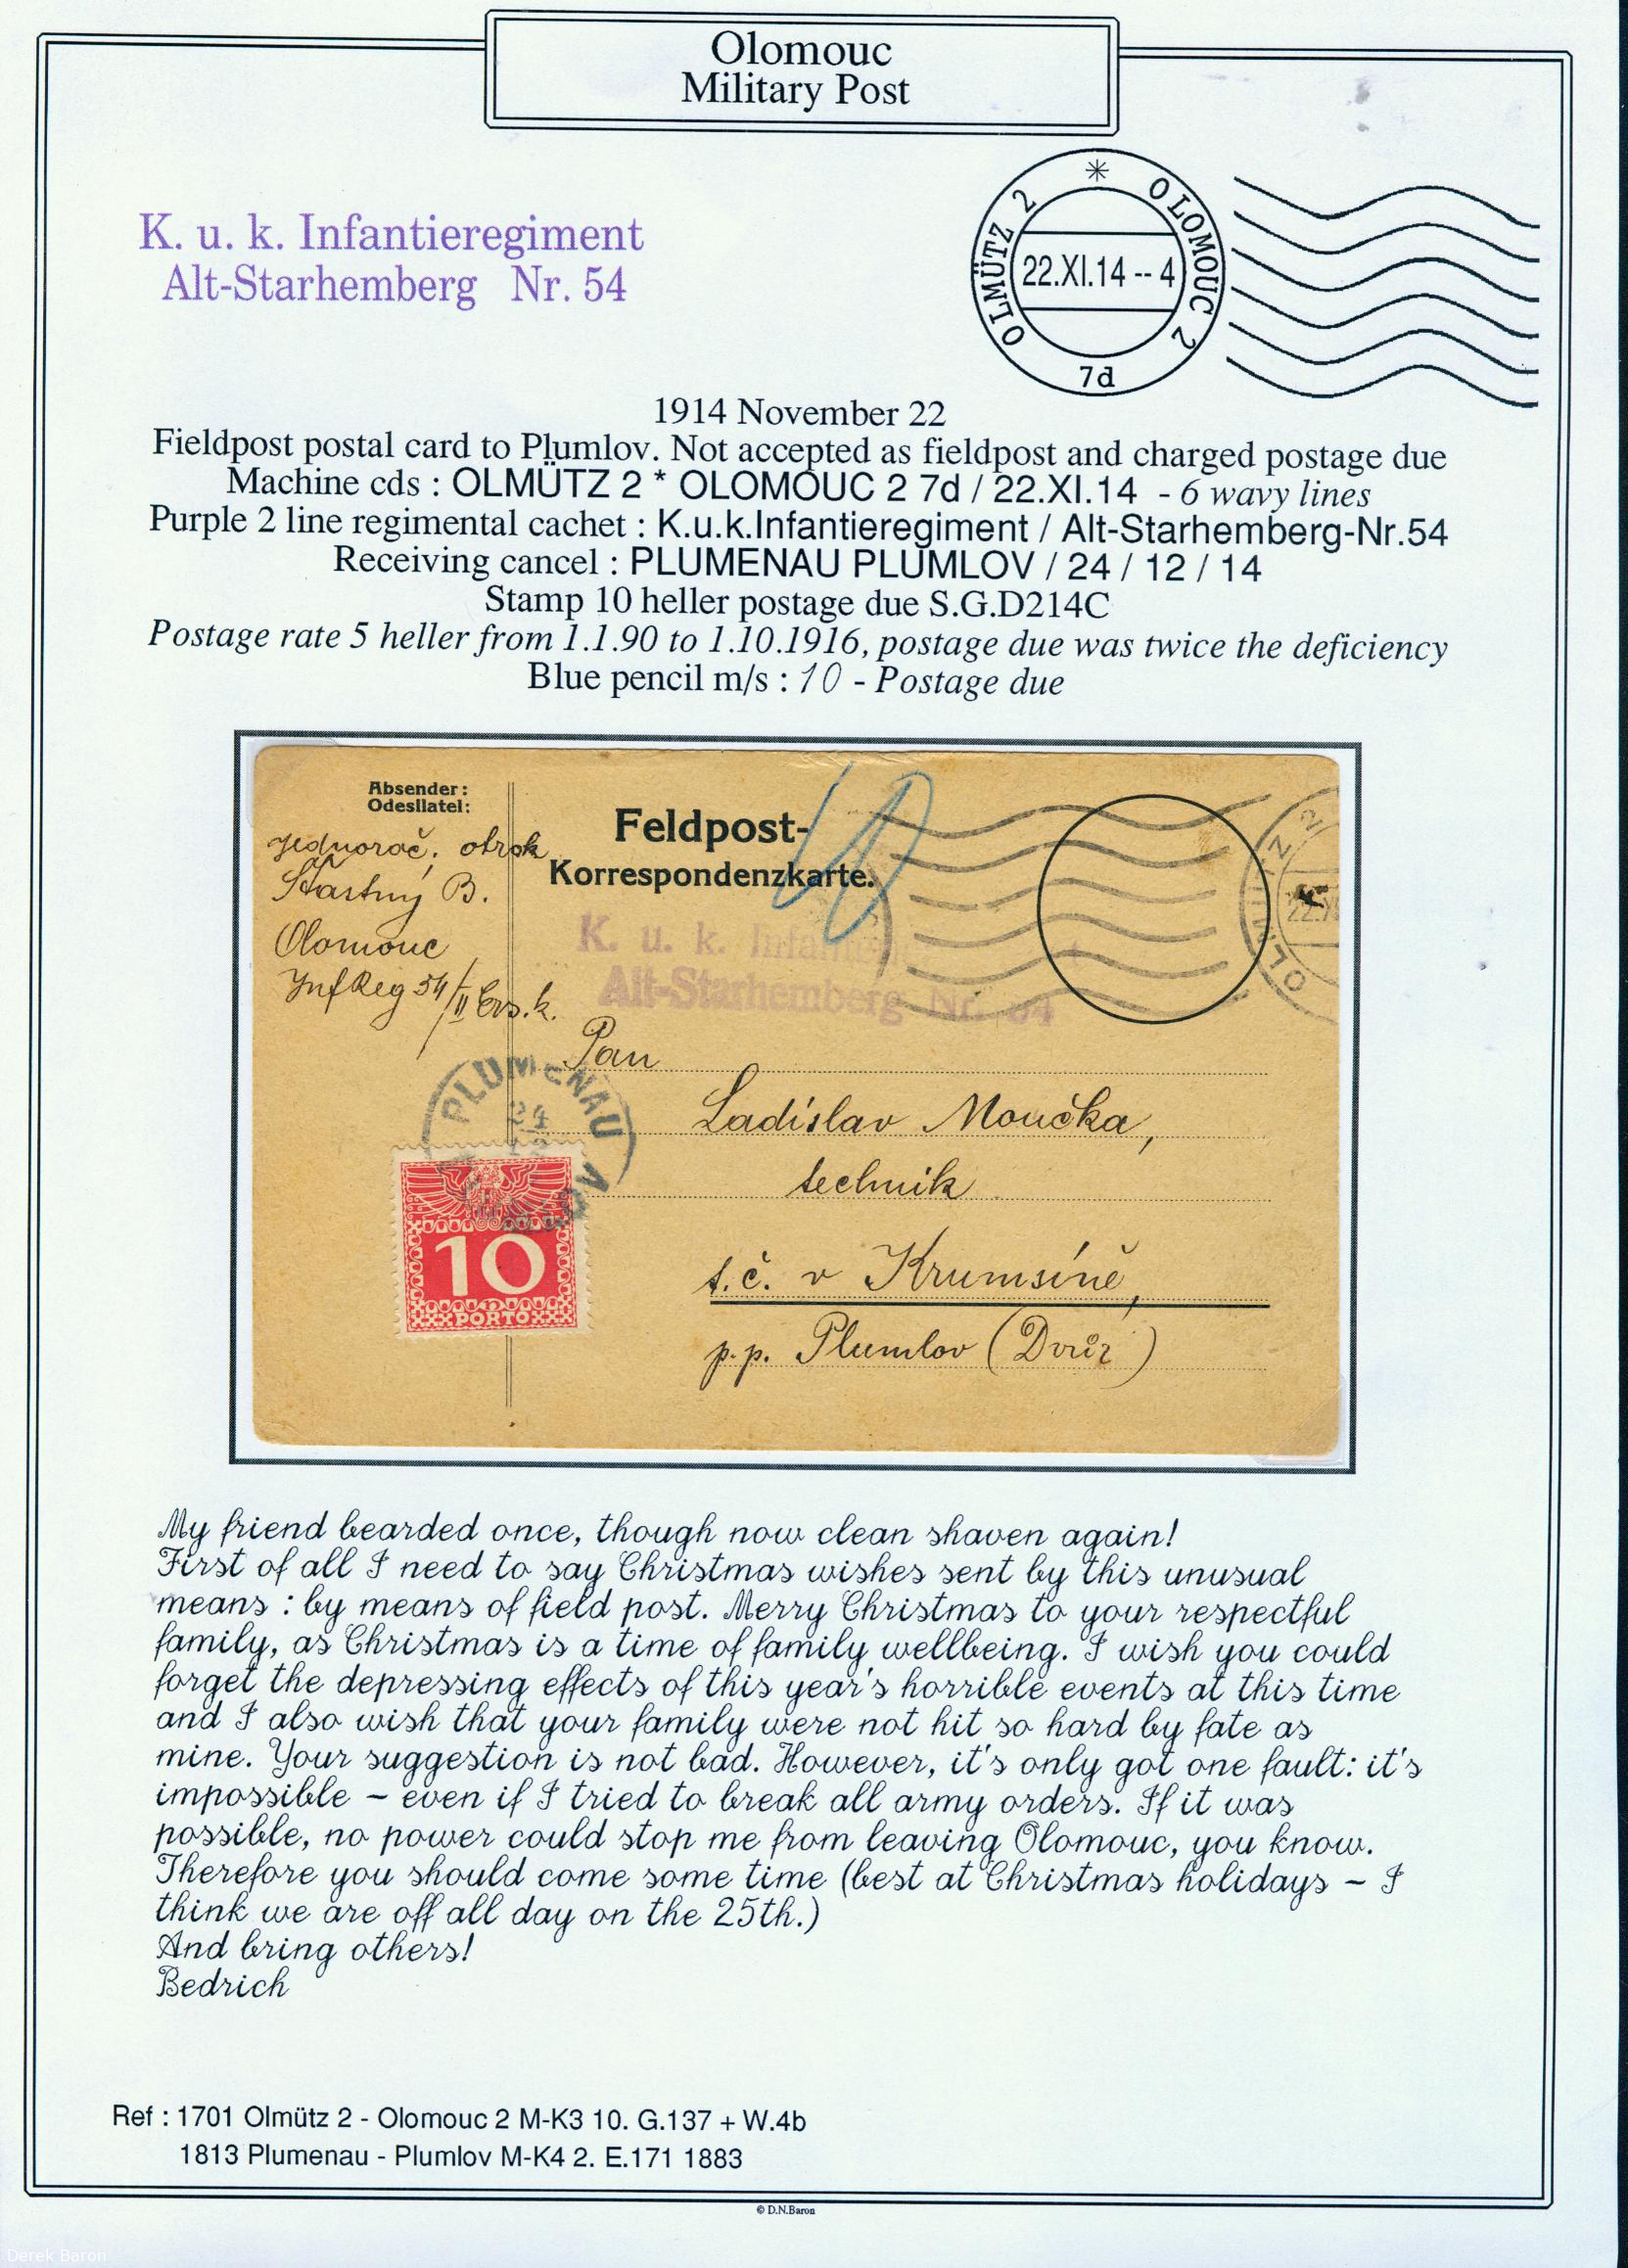 Olomouc
Military Post
K. u. k. Infantieregiment
Alt-Starhemberg Nr. 54
OLMÜTZ 2 * OLOMOUC 2
22.XI.14 -- 4
7d
1914 November 22
Fieldpost postal card to Plumlov. Not accepted as fieldpost and charged postage due
Machine cds : OLMÜTZ 2 * OLOMOUC 2 7d / 22.XI.14 - 6 wavy lines
Purple 2 line regimental cachet : K.u.k.Infantieregiment / Alt-Starhemberg-Nr.54
Receiving cancel : PLUMENAU PLUMLOV / 24 / 12 / 14
Stamp 10 heller postage due S.G.D214C
Postage rate 5 heller from 1.1.90 to 1.10.1916, postage due was twice the deficiency
Blue pencil m/s : 10 - Postage due
Absender:
Odesilatel:
Jednoroč. otrok
Šťastný B.
Olomouc
Inf Reg 54/II Ers.k.
Feldpost-
Korrespondenzkarte.
10
K. u. k.
Alt-Starhemberg Nr. 54
OLMÜTZ 2
22.X
Pan
Ladislav Moučka,
technik
t.č. v Krumsíně,
p.p. Plumlov (Dvůr)
PLUMENAU
24
10
PORTO
My friend bearded once, though now clean shaven again!
First of all I need to say Christmas wishes sent by this unusual
means : by means of field post. Merry Christmas to your respectful
family, as Christmas is a time of family wellbeing. I wish you could
forget the depressing effects of this year's horrible events at this time
and I also wish that your family were not hit so hard by fate as
mine. Your suggestion is not bad. However, it's only got one fault: it's
impossible – even if I tried to break all army orders. If it was
possible, no power could stop me from leaving Olomouc, you know.
Therefore you should come some time (best at Christmas holidays – I
think we are off all day on the 25th.)
And bring others!
Bedrich
Ref : 1701 Olmütz 2 - Olomouc 2 M-K3 10. G.137 + W.4b
1813 Plumenau - Plumlov M-K4 2. E.171 1883
© D.N.Baron
Derek Baron